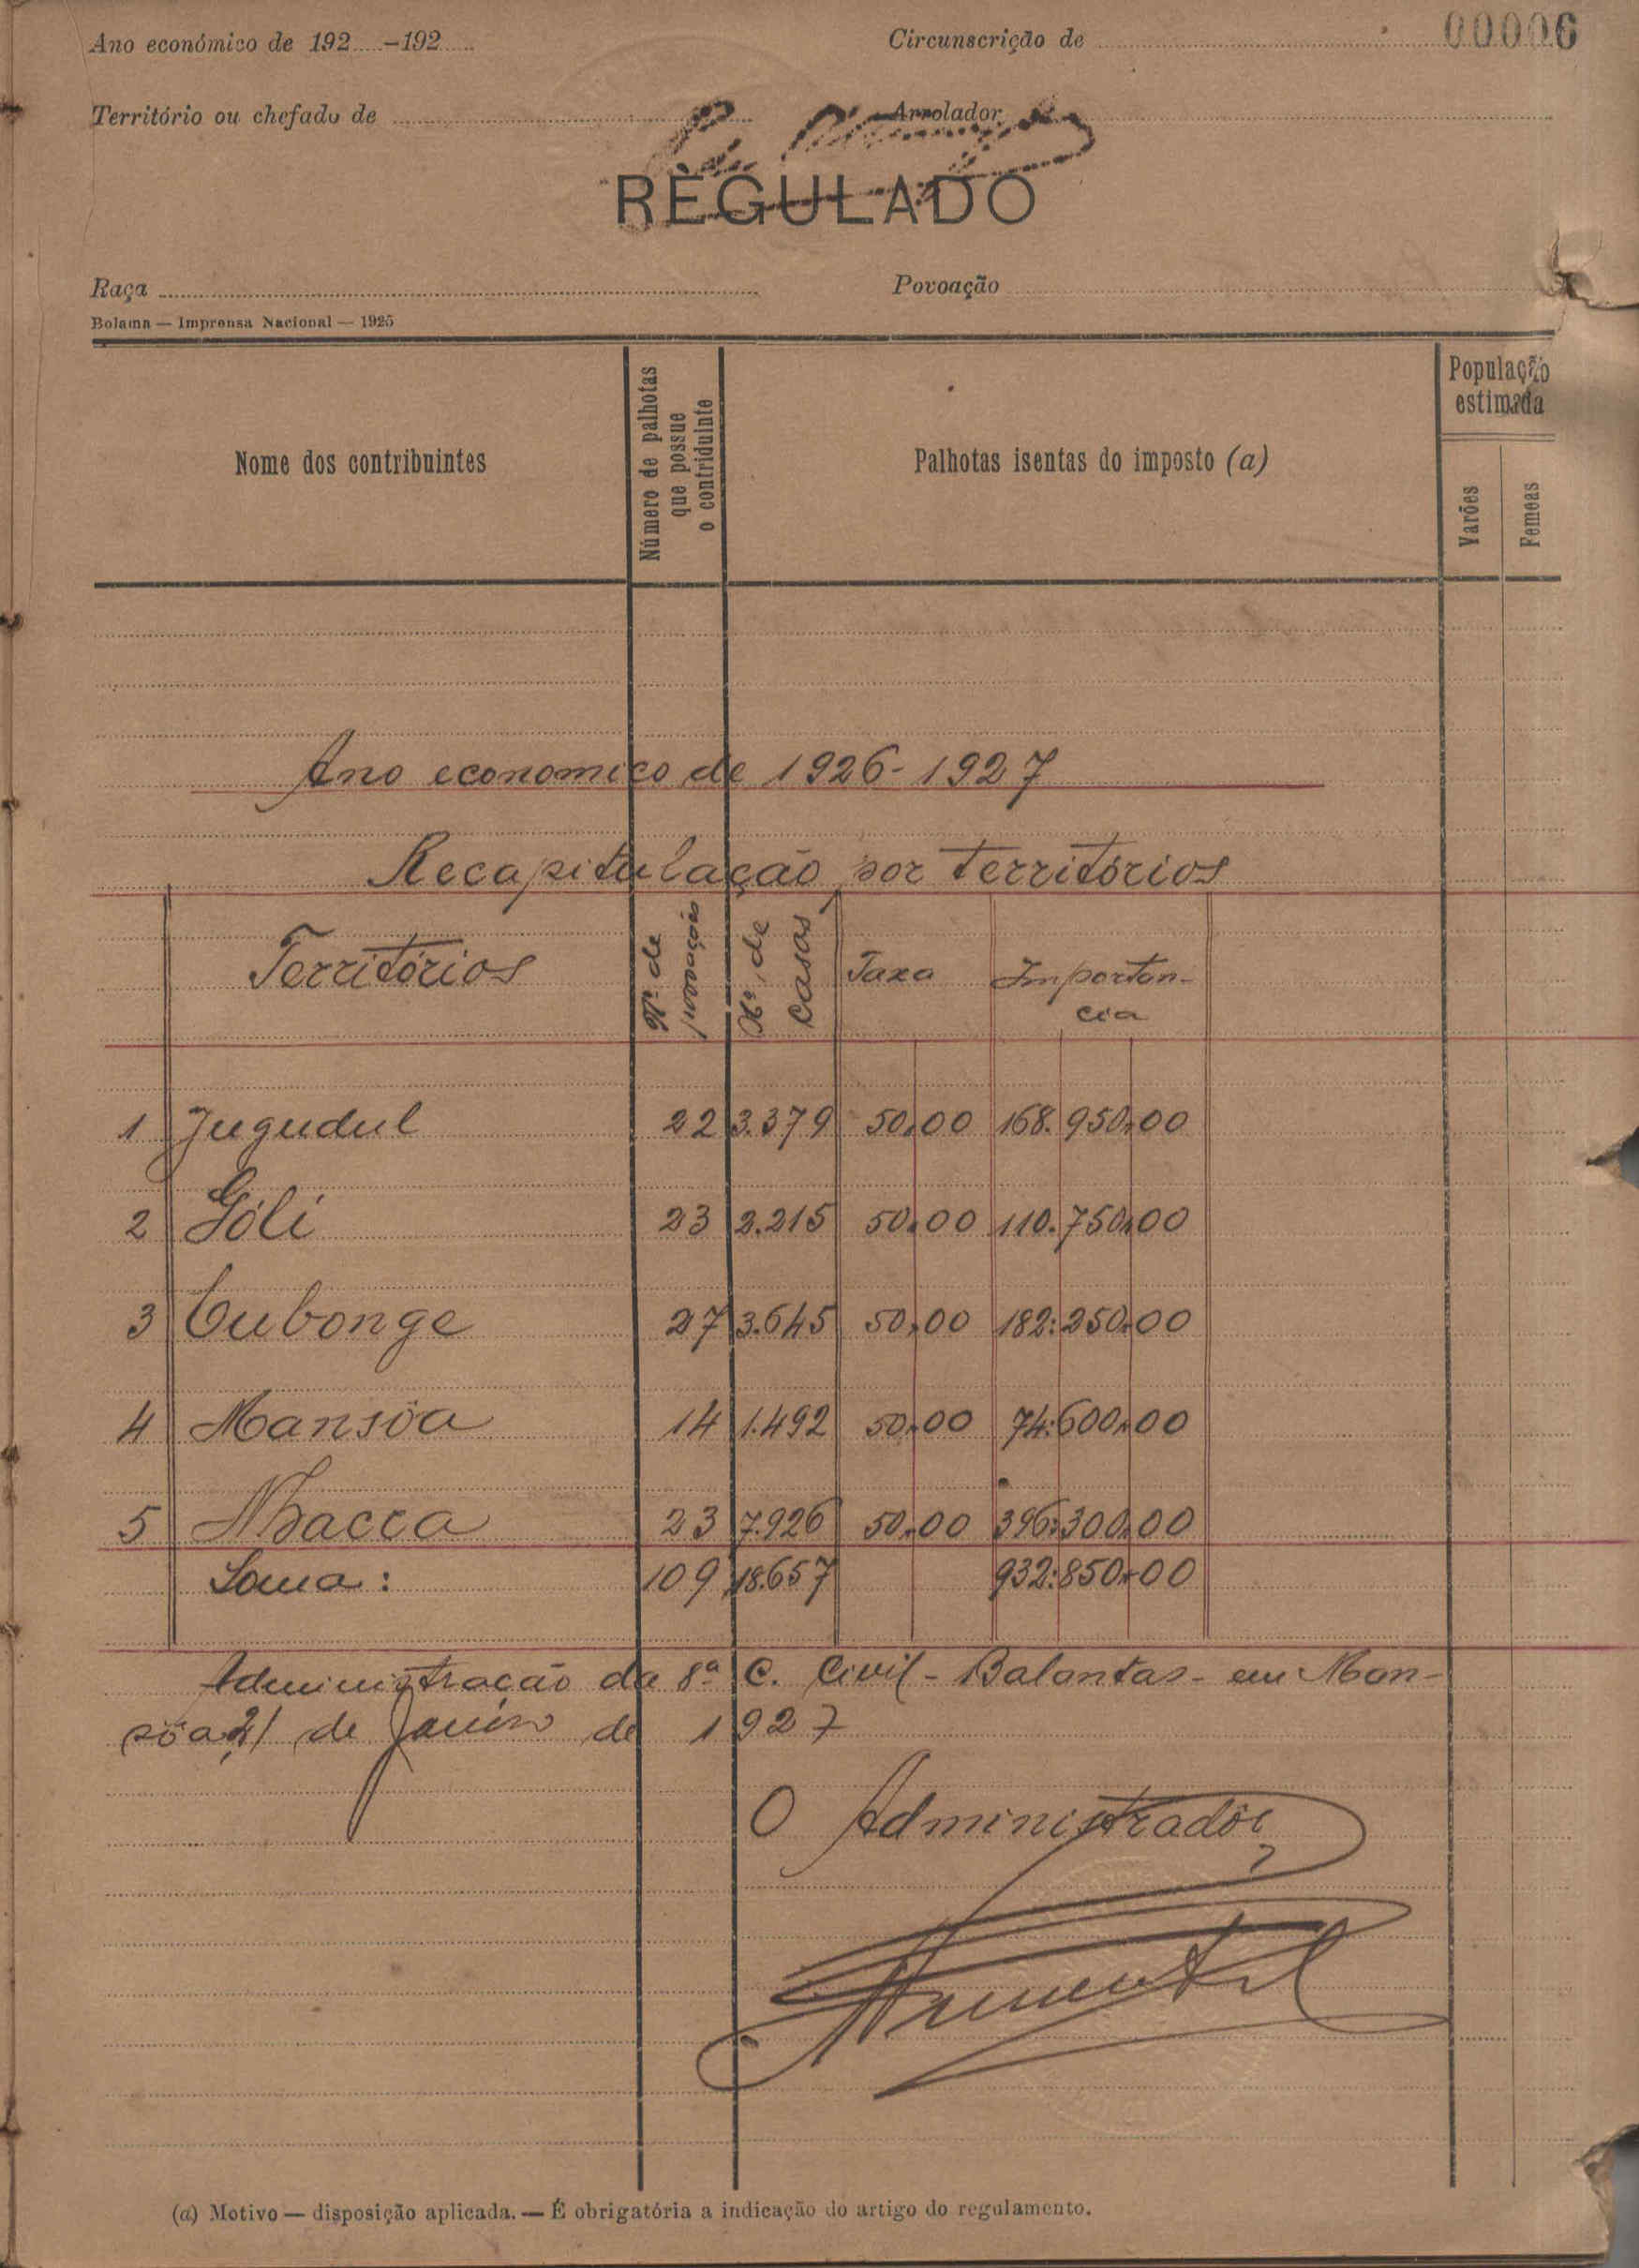 Ano económico de 192.....-192..... Circunscrição de 00006
Território ou chefado de Arrolador
RÈGULADO
Raça Povoação
Bolama — Imprensa Nacional — 1925
Nome dos contribuintes
Número de palhotas
que possue
o contriduinte
Palhotas isentas do imposto (a)
População
estimada
Varões
Femeas
Ano economico de 1926-1927
Recapitulação por territórios
Territórios
Nº. de
povoações
Nº. de
casas
Taxa
Importan-
cia
1 Jugudul 22 3.379 50,00 168.950,00
2 Góli 23 2.215 50,00 110.750,00
3 Cubonge 27 3.645 50,00 182:250,00
4 Mansôa 14 1.492 50,00 74:600,00
5 Nhacra 23 7.926 50,00 396:300,00
Soma: 109 18.657 932:850,00
Administração da 8ª C. Civil - Balantas - em Man-
sôa, 21 de Janeiro de 1927
O Administradôr,
(a) Motivo — disposição aplicada. — É obrigatória a indicação do artigo do regulamento.